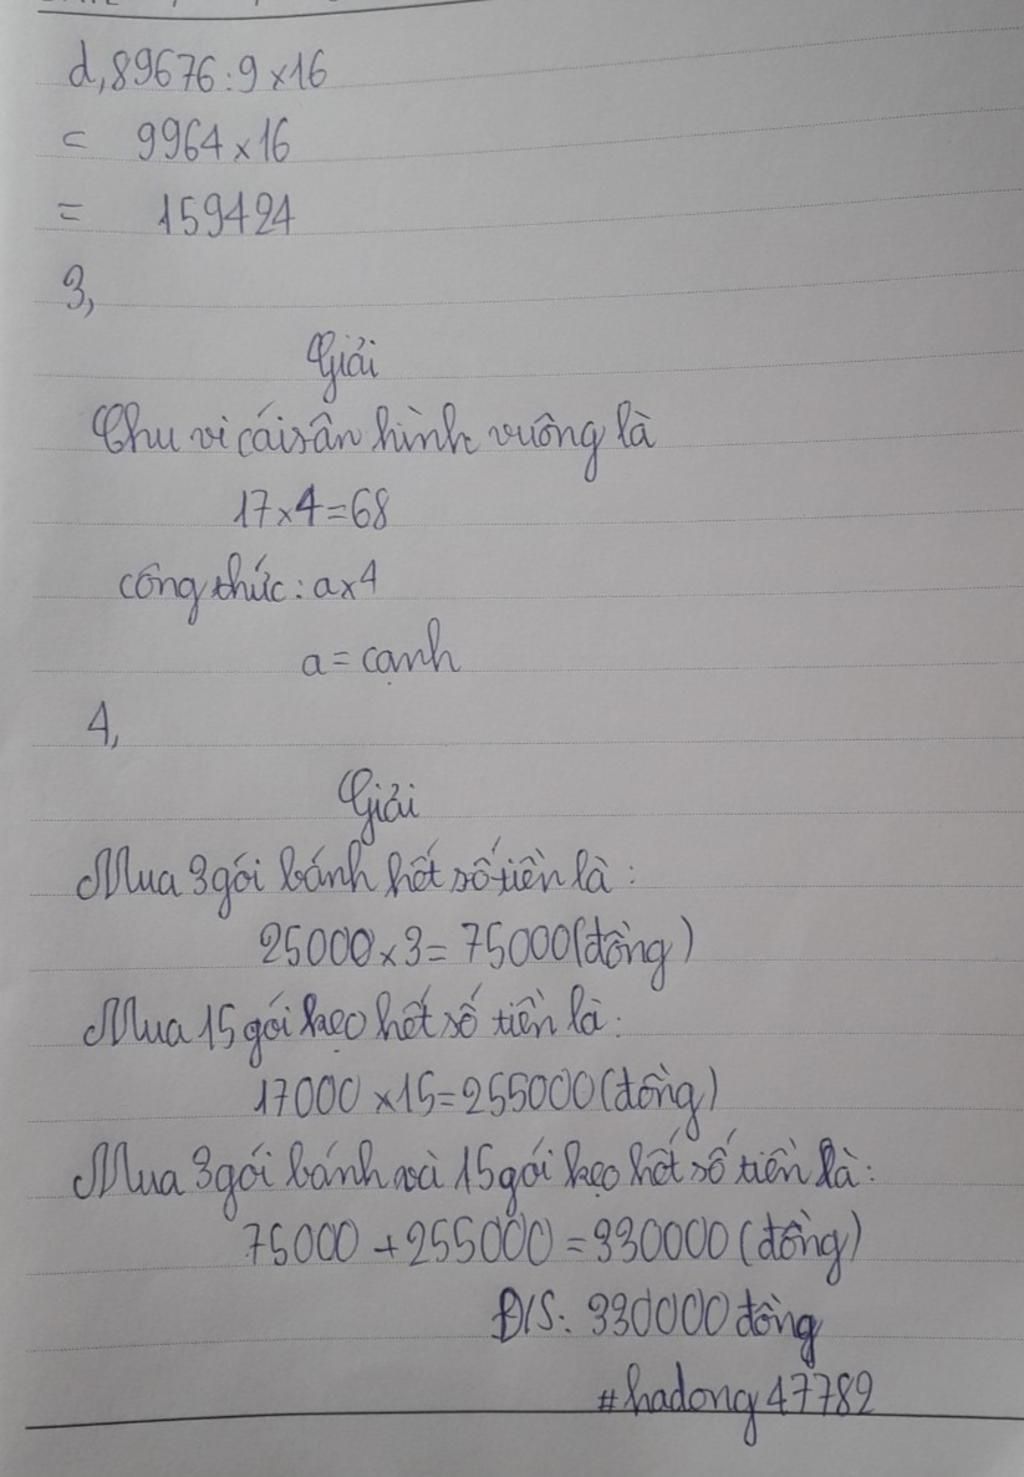 d, 89676 : 9 x 16
= 9964 x 16
= 159424
3,
Giải
Chu vi cái sân hình vuông là
17 x 4 = 68
công thức : a x 4
a = cạnh
4,
Giải
Mua 3 gói bánh hết số tiền là :
25000 x 3 = 75000 (đồng)
Mua 15 gói kẹo hết số tiền là :
17000 x 15 = 255000 (đồng)
Mua 3 gói bánh và 15 gói kẹo hết số tiền là :
75000 + 255000 = 330000 (đồng)
Đ/S : 330000 đồng
#hadong47782